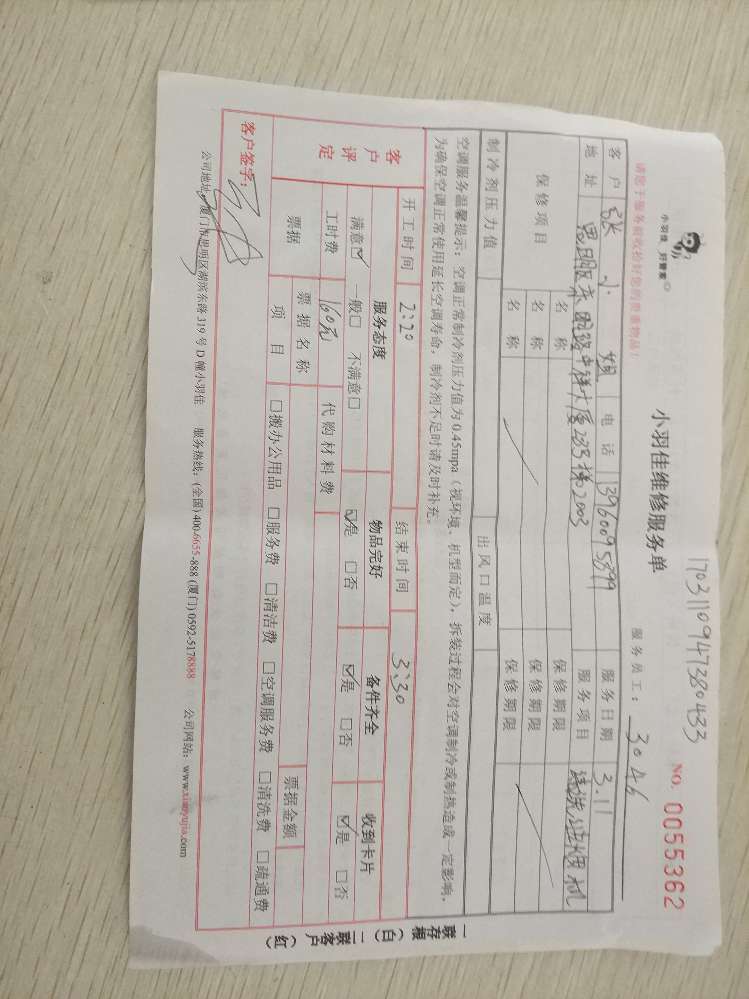 1703110947380433
小羽佳 好管家
小羽佳维修服务单
NO. 0055362
请您于服务前收拾好您的贵重物品!
服务员工: 3046
客户 电话 13960095899 服务日期 3.11
地址 服务项目 清洗油烟机
保修项目 名称 保修期限
名称 保修期限
名称 保修期限
制冷剂压力值 出风口温度
空调服务温馨提示:空调正常制冷剂压力值为0.45mpa(视环境、机型而定),拆装过程会对空调制冷或制热造成一定影响,
为确保空调正常使用延长空调寿命,制冷剂不足时请及时补充。
开工时间 2:20 结束时间 3:30
客户评定 服务态度 物品完好 备件齐全 收到卡片
满意☑ 一般□ 不满意□ ☑是 □否 ☑是 □否 ☑是 □否
工时费 160元 代购材料费
票据 票据名称 票据金额
项目 □搬办公用品 □服务费 □清洁费 □空调服务费 □清洗费 □疏通费
客户签字:
公司地址:厦门市思明区湖滨东路119号D幢小羽佳 服务热线:(全国)400-6655-888 (厦门)0592-5178888 公司网站:www.xiaoyujia.com
一联存根(白) 二联客户(红)